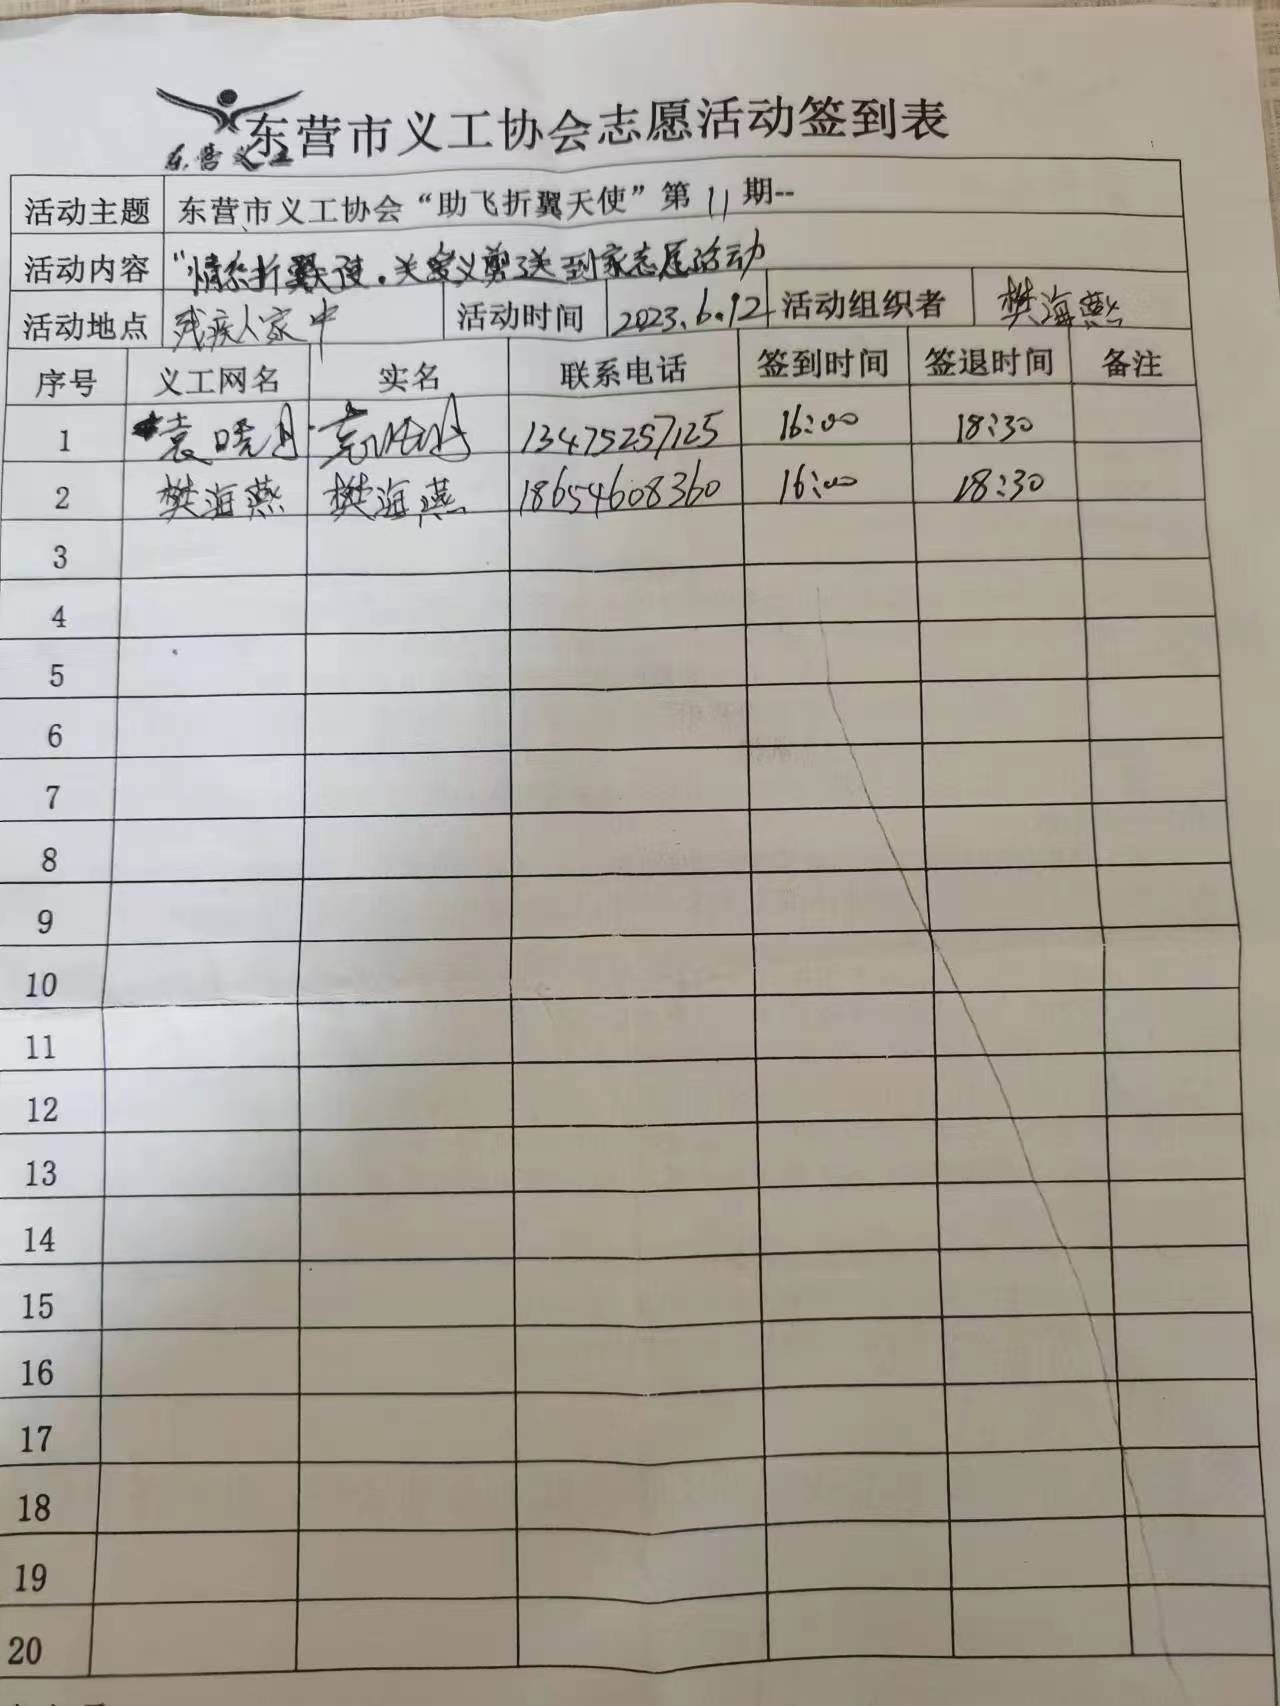 东营市义工协会志愿活动签到表
东营义工
活动主题 东营市义工协会“助飞折翼天使”第 11 期--
活动内容 “情系折翼天使.关爱义剪送到家志愿活动
活动地点 残疾人家中 活动时间 2023.6.12 活动组织者 樊海燕
序号 义工网名 实名 联系电话 签到时间 签退时间 备注
1 袁晓丹 袁晓丹 13475257125 16:00 18:30
2 樊海燕 樊海燕 18654608360 16:00 18:30
3
4
5
6
7
8
9
10
11
12
13
14
15
16
17
18
19
20